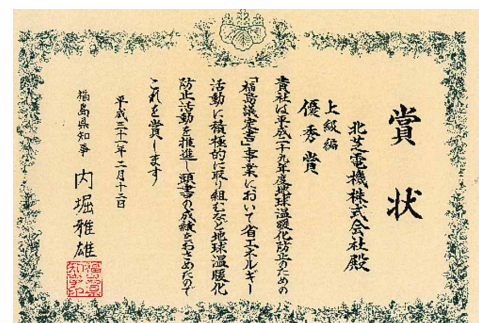 賞状
北芝電機株式会社殿
上級編
優秀賞
貴社は平成二十九年度地球温暖化防止のための
「福島議定書」事業において省エネルギー
活動に積極的に取り組むなど地球温暖化
防止活動を推進し頭書の成績をおさめたので
これを賞します
平成三十一年二月十三日
福島県知事 内堀雅雄